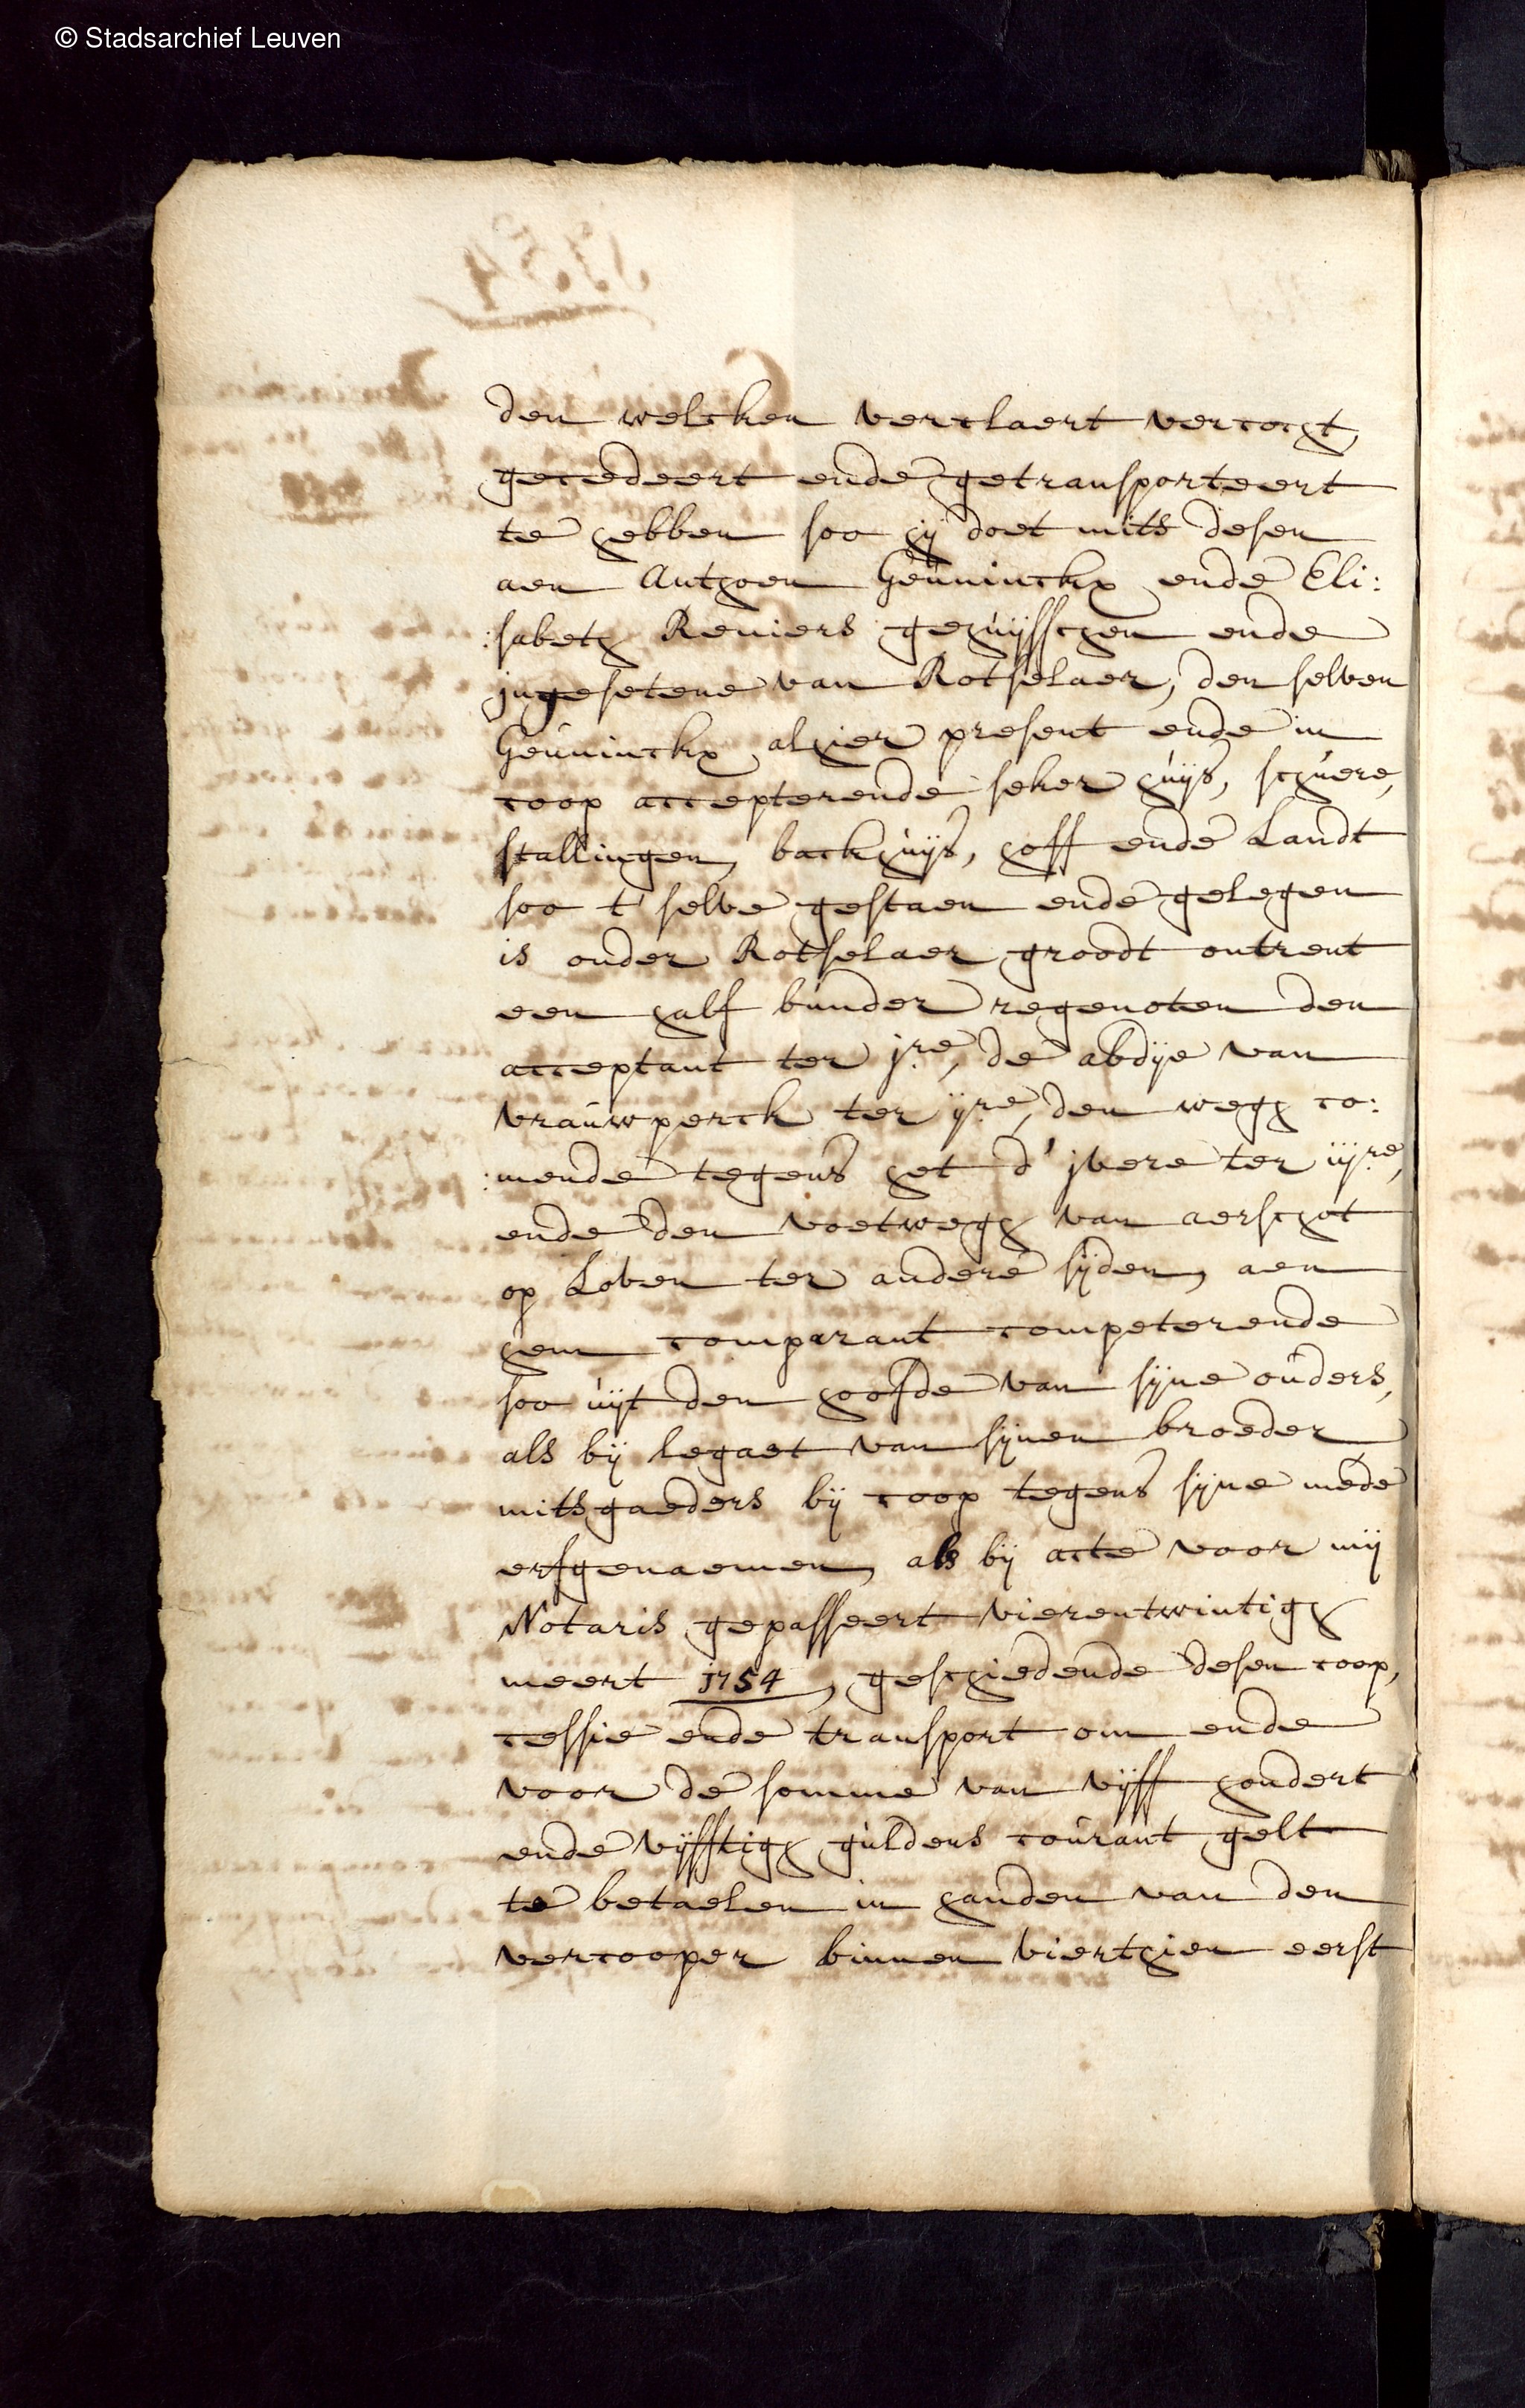 © Stadsarchief Leuven
den welcken verclaert vercocht,
gecedeert ende getransporteert
te hebben soo hij doet mits desen
aen Anthoen Geûninckx ende Eli:
:sabeth Reniers gehûijsschen ende
jngesetene van Rotselaer, den selven
Geûninckx alhier present ende in
coop accepterende seker hûijs, schûere,
stallingen, backhûijs, hoff ende Landt
soo t'selve gestaen ende gelegen
is onder Rotselaer groodt ontrent
een half bunder regenoten den
acceptant ter j.re, de abdije van
vrauwperck ter ij.re, den wegh co:
:mende tegens het d'jvere ter iij.re,
ende den voetwegh van aerschot
op Loven ter andere sijden, aen
hem comparant competerende
soo ûijt den hoofde van sijne oûders,
als bij legaet van sijnen broeder
mitsgaeders bij coop tegens sijne mede
erfgenaemen, als bij acte voor mij
Notaris gepasseert vierentwintigh
meert 1754, geschiedende desen coop,
cessie ende transport om ende
voor de somme van vijff hondert
ende vijfftigh gûldens coûrant gelt
te betaelen in handen van den
vercooper binnen vierthien eerst